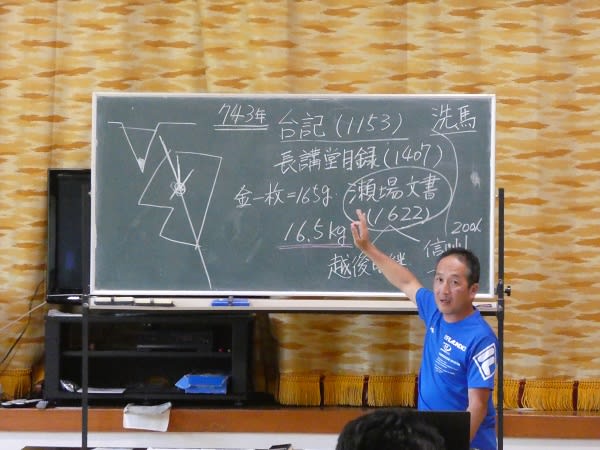 743年
台記(1153)
洗馬
長講堂目録(1407)
金一枚=165g
瀬場文書
(1622)
16.5kg
信州
越後
FILA